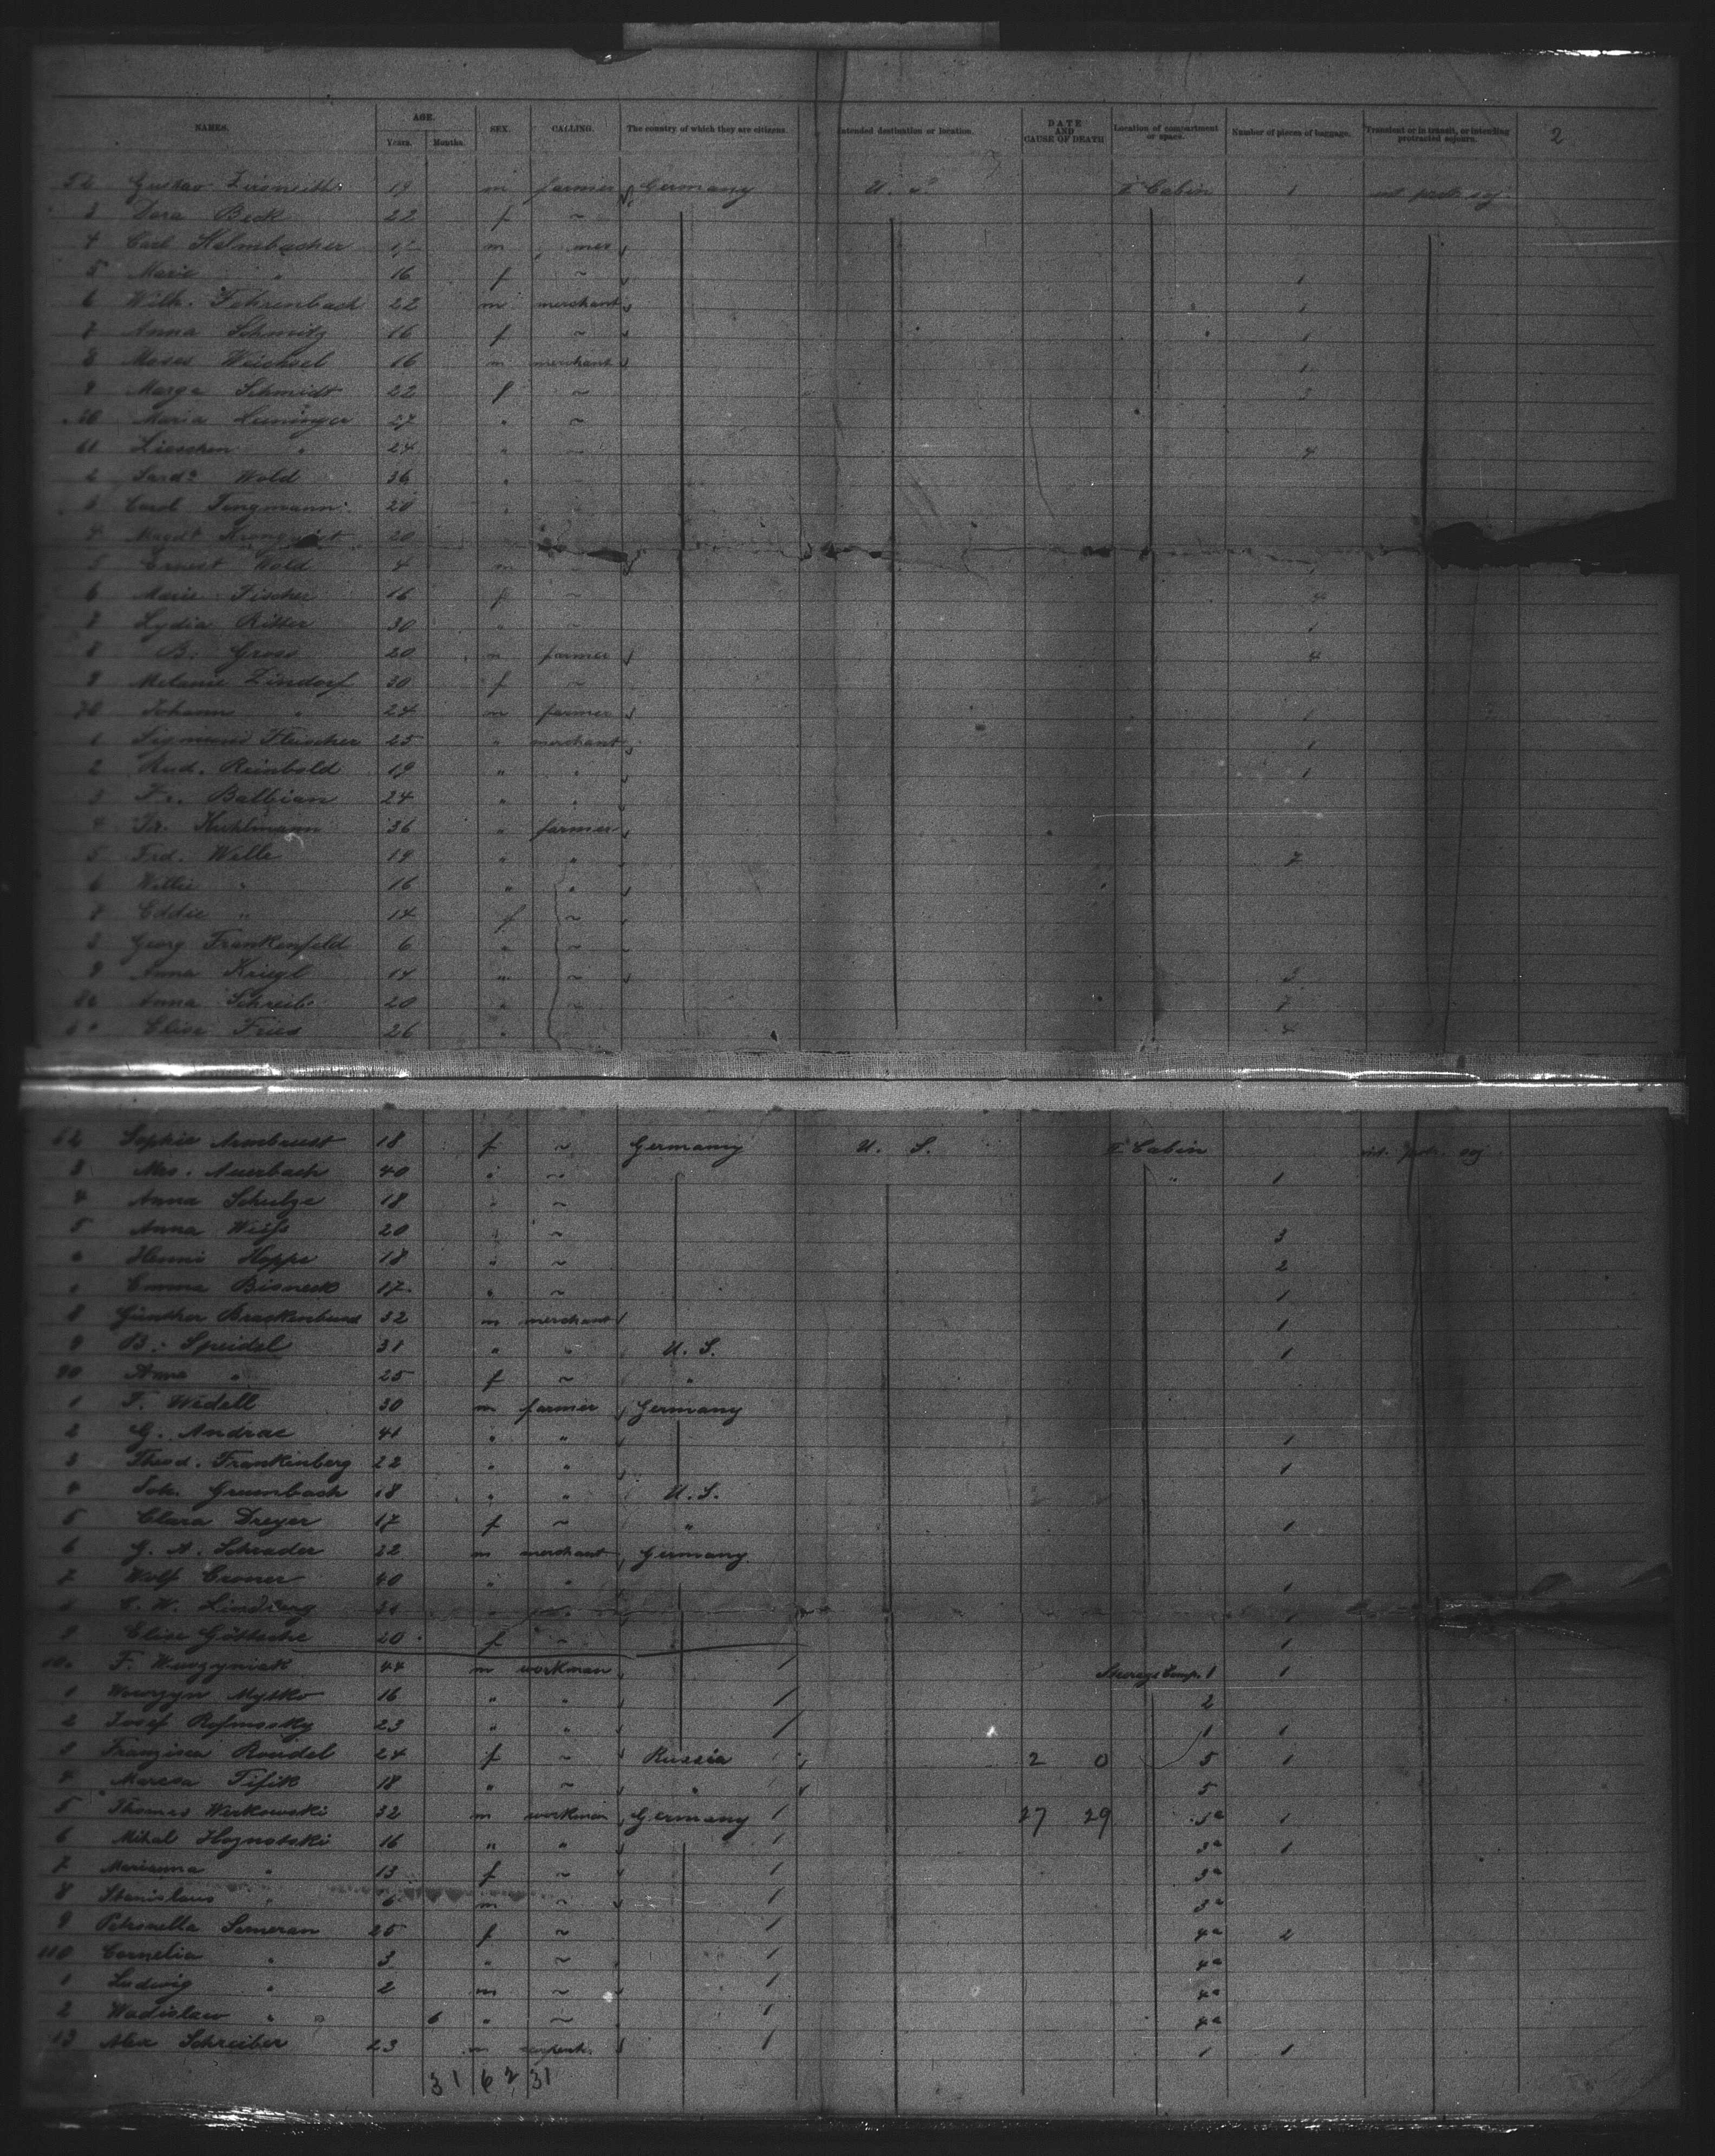 NAMES. AGE. SEX. CALLING. The country of which they are citizens. Intended destination or location. DATE AND CAUSE OF DEATH Location of compartment or space. Number of pieces of baggage. Transient or in transit, or intending protracted sojourn. 2
Years. Months.
Gustav 19 m farmer Germany U. S. II Cabin 1
3 Dora Beck 22 f ~
4 Carl Helmbacher m
5 Marie " 16 f ~ 1
6 Wilh. Fehrenbach 22 m merchant 1
7 Anna Schmitz 16 f ~ 1
8 Moses Weichsel 16 m merchant 1
9 Marga Schmidt 22 f ~ 3
60 Maria Leininger 27 " ~
61 Lieschen " 24 " 4
2 Wold 36 "
3 Carol Tengmann 20 "
4 Magdt Kronquist 20
5 Ernest Wold 4 m
6 Marie Fischer 16 f ~ 4
7 Lydia Ritter 30 " 1
8 B. Gross 20 m farmer 4
9 Melanie Zindorf 30 f ~
70 Johann " 24 m farmer 1
1 Sigmund Fleischer 25 " merchant 1
2 Rud. Reinbold 19 " " 1
3 Fr. Balbian 24 " "
4 Fr. Kuhlmann 36 " farmer
5 Frd. Wille 19 " " 7
6 Willie " 16 " "
Eddie " 14 f ~
8 Georg Frankenfeld 6 " ~
9 Anna Kriegl 14 " ~ 3
80 Anna Schreib 20 " ~ 1
Elise Fries 26 " 4
82 Sophie Armbrust 18 f ~ Germany U. S. II Cabin
3 Mrs. Auerbach 40 " ~ 1
4 Anna Schulze 18 " ~
5 Anna Weiss 20 " ~ 3
Henni Hoppe 18 " ~ 2
Emma Bisneck 17 " ~ 1
8 Günther 32 m merchant 1
9 B. Speidel 31 " " U. S. 1
90 Anna " 25 f ~ "
1 F. Wedell 30 m farmer Germany
2 G. Andrae 41 " " 1
3 Theod. Frankinberg 22 " " 1
4 Joh. Grumbach 18 " " U. S.
5 Clara Dreyer 17 f ~ " 1
6 G. A. Schrader 22 m merchant Germany
7 Wolf Croner 40 " " 1
W. Lindberg 31 " 1
9 Elise Göttsche 20 f ~ 1
100 F. Wawzyniak 44 m workman Steerage Comp. 1 1
1 Wawrzyn Mytko 16 " " 2
2 Josef 23 " " 1 1
3 Franzisca Rondel 24 f ~ Russia 2 0 5 1
4 Maresa Tifik 18 " ~ " 5
5 Thomas Werkowski 32 m workman Germany 27 29 3a 1
6 Mihal Hoznatski 16 " " 3a 1
7 Marianna " 13 f ~ 3a
8 Stanislaus " 6 m ~ 3a
9 Petronella Semeran 25 f ~ 4a 2
110 Cornelia " 3 " ~ 4a
1 Ludwig " 2 m ~ 4a
2 Wadislaw " 6 " ~ 4a
13 Alex Schreiber 23 m carpent. 1 1
31 62 31